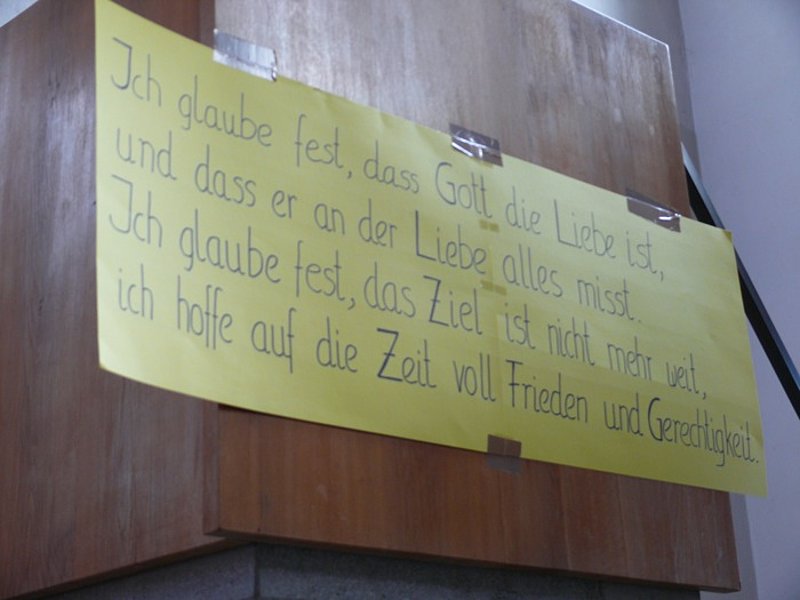 Ich glaube fest, dass Gott die Liebe ist,
und dass er an der Liebe alles misst.
Ich glaube fest, das Ziel ist nicht mehr weit,
ich hoffe auf die Zeit voll Frieden und Gerechtigkeit.